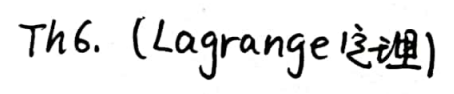 Th6. (Lagrange定理)